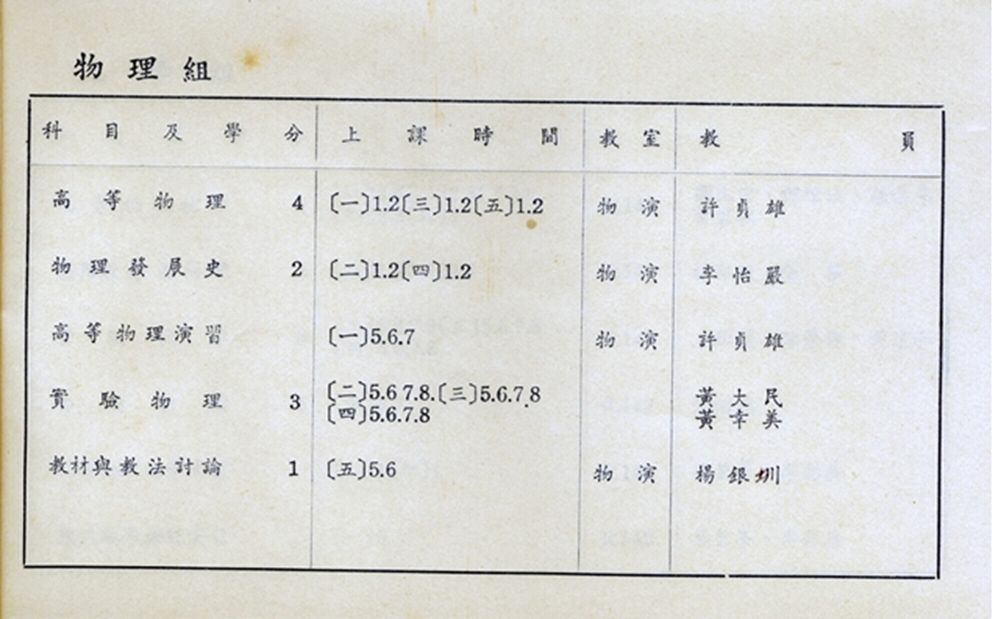 物理組
科目及學分 上課時間 教室 教員
高等物理 4 〔一〕1.2〔三〕1.2〔五〕1.2 物演 許貞雄
物理發展史 2 〔二〕1.2〔四〕1.2 物演 李怡嚴
高等物理演習 〔一〕5.6.7 物演 許貞雄
實驗物理 3 〔二〕5.6 7.8.〔三〕5.6.7.8 黃大民
〔四〕5.6.7.8 黃幸美
教材與教法討論 1 〔五〕5.6 物演 楊銀圳